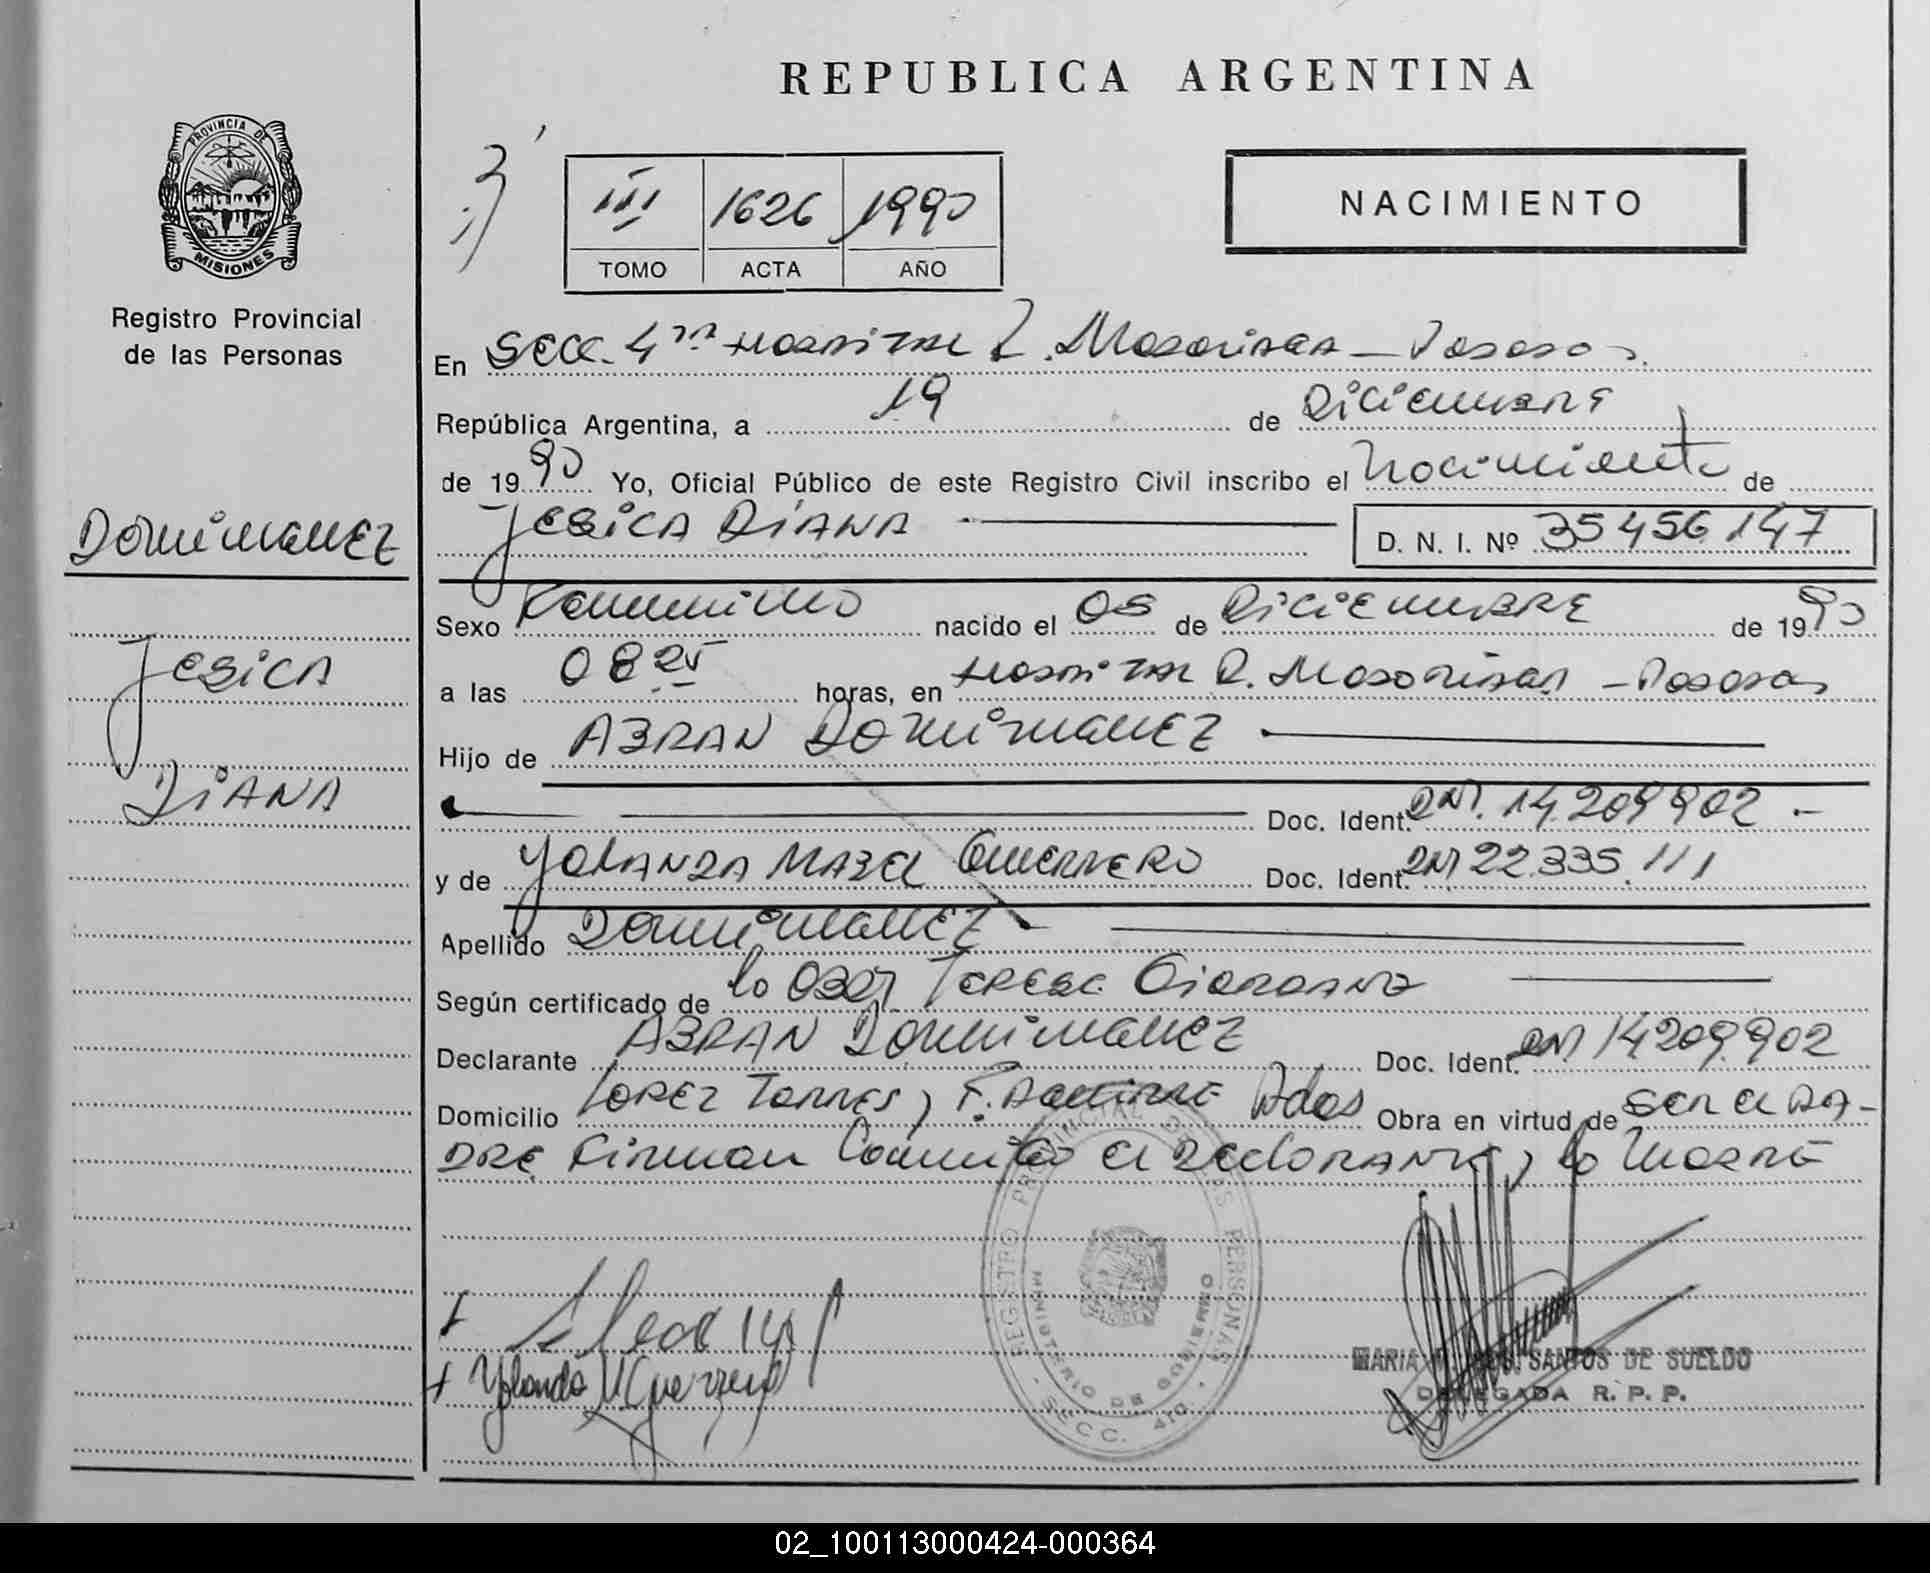 REPUBLICA ARGENTINA
PROVINCIA DE
MISIONES
Registro Provincial
de las Personas
III 1626 1990
TOMO ACTA AÑO
NACIMIENTO
En Secc. 4ta Hospital R. Madariaga - Posadas
República Argentina, a 19 de Diciembre
de 1990 Yo, Oficial Público de este Registro Civil inscribo el Nacimiento de
JESICA DIANA D. N. I. Nº 35456147
DOMINGUEZ
JESICA
DIANA
Sexo Femenino nacido el 05 de DICIEMBRE de 1990
a las 08 25 horas, en Hospital R. Madariaga - Posadas
Hijo de ABRAN DOMINGUEZ
Doc. Ident. DNI. 14.209902 -
y de YOLANDA MABEL GUERRERO Doc. Ident. DNI 22.335.111
Apellido DOMINGUEZ
Según certificado de la Obst Teresa
Declarante ABRAN DOMINGUEZ Doc. Ident. DNI 14209.902
Domicilio LOPEZ TORRES y Pdas Obra en virtud de ser el PA-
DRE Firman Conmigo el DECLARANTE y la MADRE
REGISTRO PROVINCIAL DE LAS PERSONAS
MINISTERIO DE GOBIERNO
- SECC. 4ta. -
Yolanda M Guerrero
MARIA DOS SANTOS DE SUELDO
DELEGADA R. P. P.
02_100113000424-000364